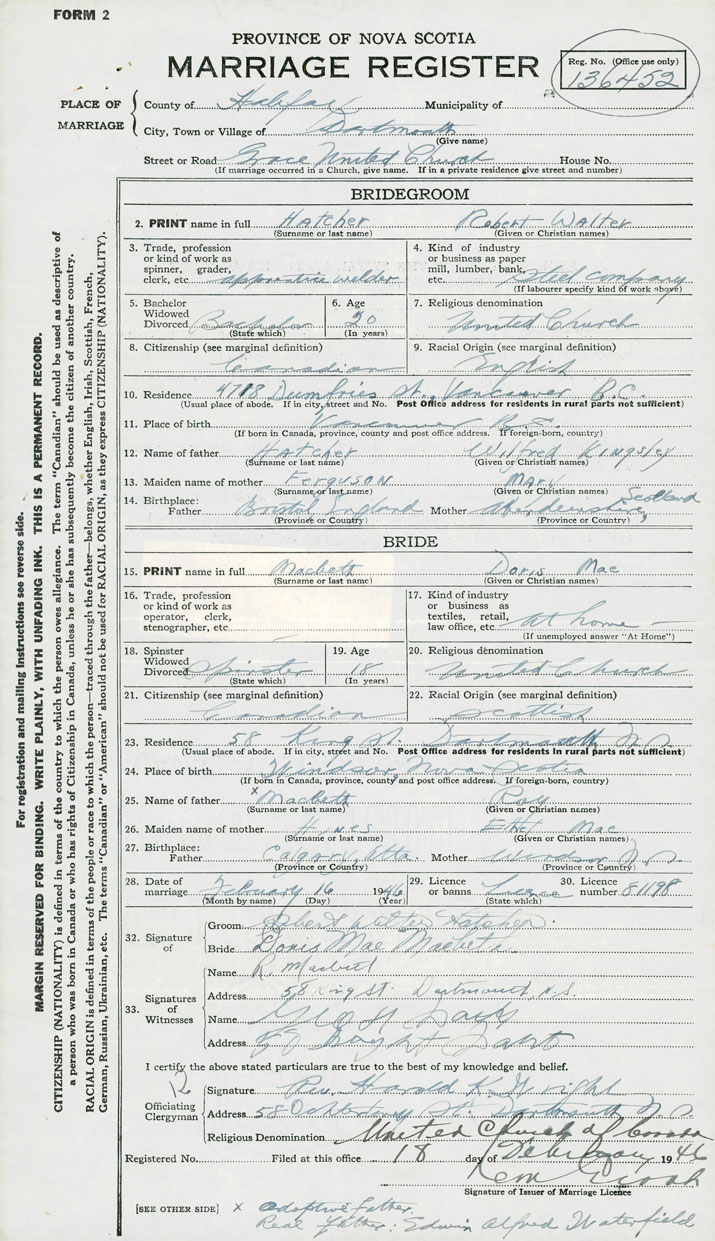 FORM 2
PROVINCE OF NOVA SCOTIA
MARRIAGE REGISTER
Reg. No. (Office use only)
136452
PLACE OF MARRIAGE
County of Halifax Municipality of
City, Town or Village of Dartmouth
(Give name)
Street or Road Grace United Church House No.
(If marriage occurred in a Church, give name. If in a private residence give street and number)
BRIDEGROOM
2. PRINT name in full Hatcher Robert Walter
(Surname or last name) (Given or Christian names)
3. Trade, profession or kind of work as spinner, grader, clerk, etc. apprentice welder
4. Kind of industry or business as paper mill, lumber, bank, etc. Steel company
(If labourer specify kind of work above)
5. Bachelor Widowed Divorced Bachelor
(State which)
6. Age 20
(In years)
7. Religious denomination United Church
8. Citizenship (see marginal definition) Canadian
9. Racial Origin (see marginal definition) English
10. Residence 4718 Dumfries St., Vancouver B.C.
(Usual place of abode. If in city, street and No. Post Office address for residents in rural parts not sufficient)
11. Place of birth Vancouver B.C.
(If born in Canada, province, county and post office address. If foreign-born, country)
12. Name of father Hatcher Wilfred Kingsley
(Surname or last name) (Given or Christian names)
13. Maiden name of mother Ferguson Mary
(Surname or last name) (Given or Christian names)
14. Birthplace: Father Bristol England Mother Aberdeenshire, Scotland
(Province or Country) (Province or Country)
BRIDE
15. PRINT name in full Macbeth Doris Mae
(Surname or last name) (Given or Christian names)
16. Trade, profession or kind of work as operator, clerk, stenographer, etc.
17. Kind of industry or business as textiles, retail, law office, etc. at home
(If unemployed answer "At Home")
18. Spinster Widowed Divorced Spinster
(State which)
19. Age 18
(In years)
20. Religious denomination United Church
21. Citizenship (see marginal definition) Canadian
22. Racial Origin (see marginal definition) Scottish
23. Residence 58 King St. Dartmouth N.S.
(Usual place of abode. If in city, street and No. Post Office address for residents in rural parts not sufficient)
24. Place of birth Windsor, Nova Scotia
(If born in Canada, province, county and post office address. If foreign-born, country)
25. Name of father x Macbeth Roy
(Surname or last name) (Given or Christian names)
26. Maiden name of mother Hines Ethel Mae
(Surname or last name) (Given or Christian names)
27. Birthplace: Father Calgary, Alta. Mother Windsor N.S.
(Province or Country) (Province or Country)
28. Date of marriage February 16 1946
(Month by name) (Day) (Year)
29. Licence or banns Licence
(State which)
30. Licence number 81198
32. Signature of
Groom Robert Walter Hatcher
Bride Doris Mae Macbeth
33. Signatures of Witnesses
Name R. Macbeth
Address 58 King St. Dartmouth, N.S.
Name
Address
I certify the above stated particulars are true to the best of my knowledge and belief.
12
Officiating Clergyman
Signature Rev. Harold K. Wright
Address 58 Ochterloney St. Dartmouth N.S.
Religious Denomination United Church of Canada
Registered No. Filed at this office 18 day of February 1946
Signature of Issuer of Marriage Licence
[SEE OTHER SIDE] x adoptive father.
Real father: Edwin Alfred Waterfield
For registration and mailing instructions see reverse side.
MARGIN RESERVED FOR BINDING. WRITE PLAINLY, WITH UNFADING INK. THIS IS A PERMANENT RECORD.
CITIZENSHIP (NATIONALITY) is defined in terms of the country to which the person owes allegiance. The term "Canadian" should be used as descriptive of
a person who was born in Canada or who has rights of Citizenship in Canada, unless he or she has subsequently become the citizen of another country.
RACIAL ORIGIN is defined in terms of the people or race to which the person—traced through the father—belongs, whether English, Irish, Scottish, French,
German, Russian, Ukrainian, etc. The terms "Canadian" or "American" should not be used for RACIAL ORIGIN, as they express CITIZENSHIP (NATIONALITY).